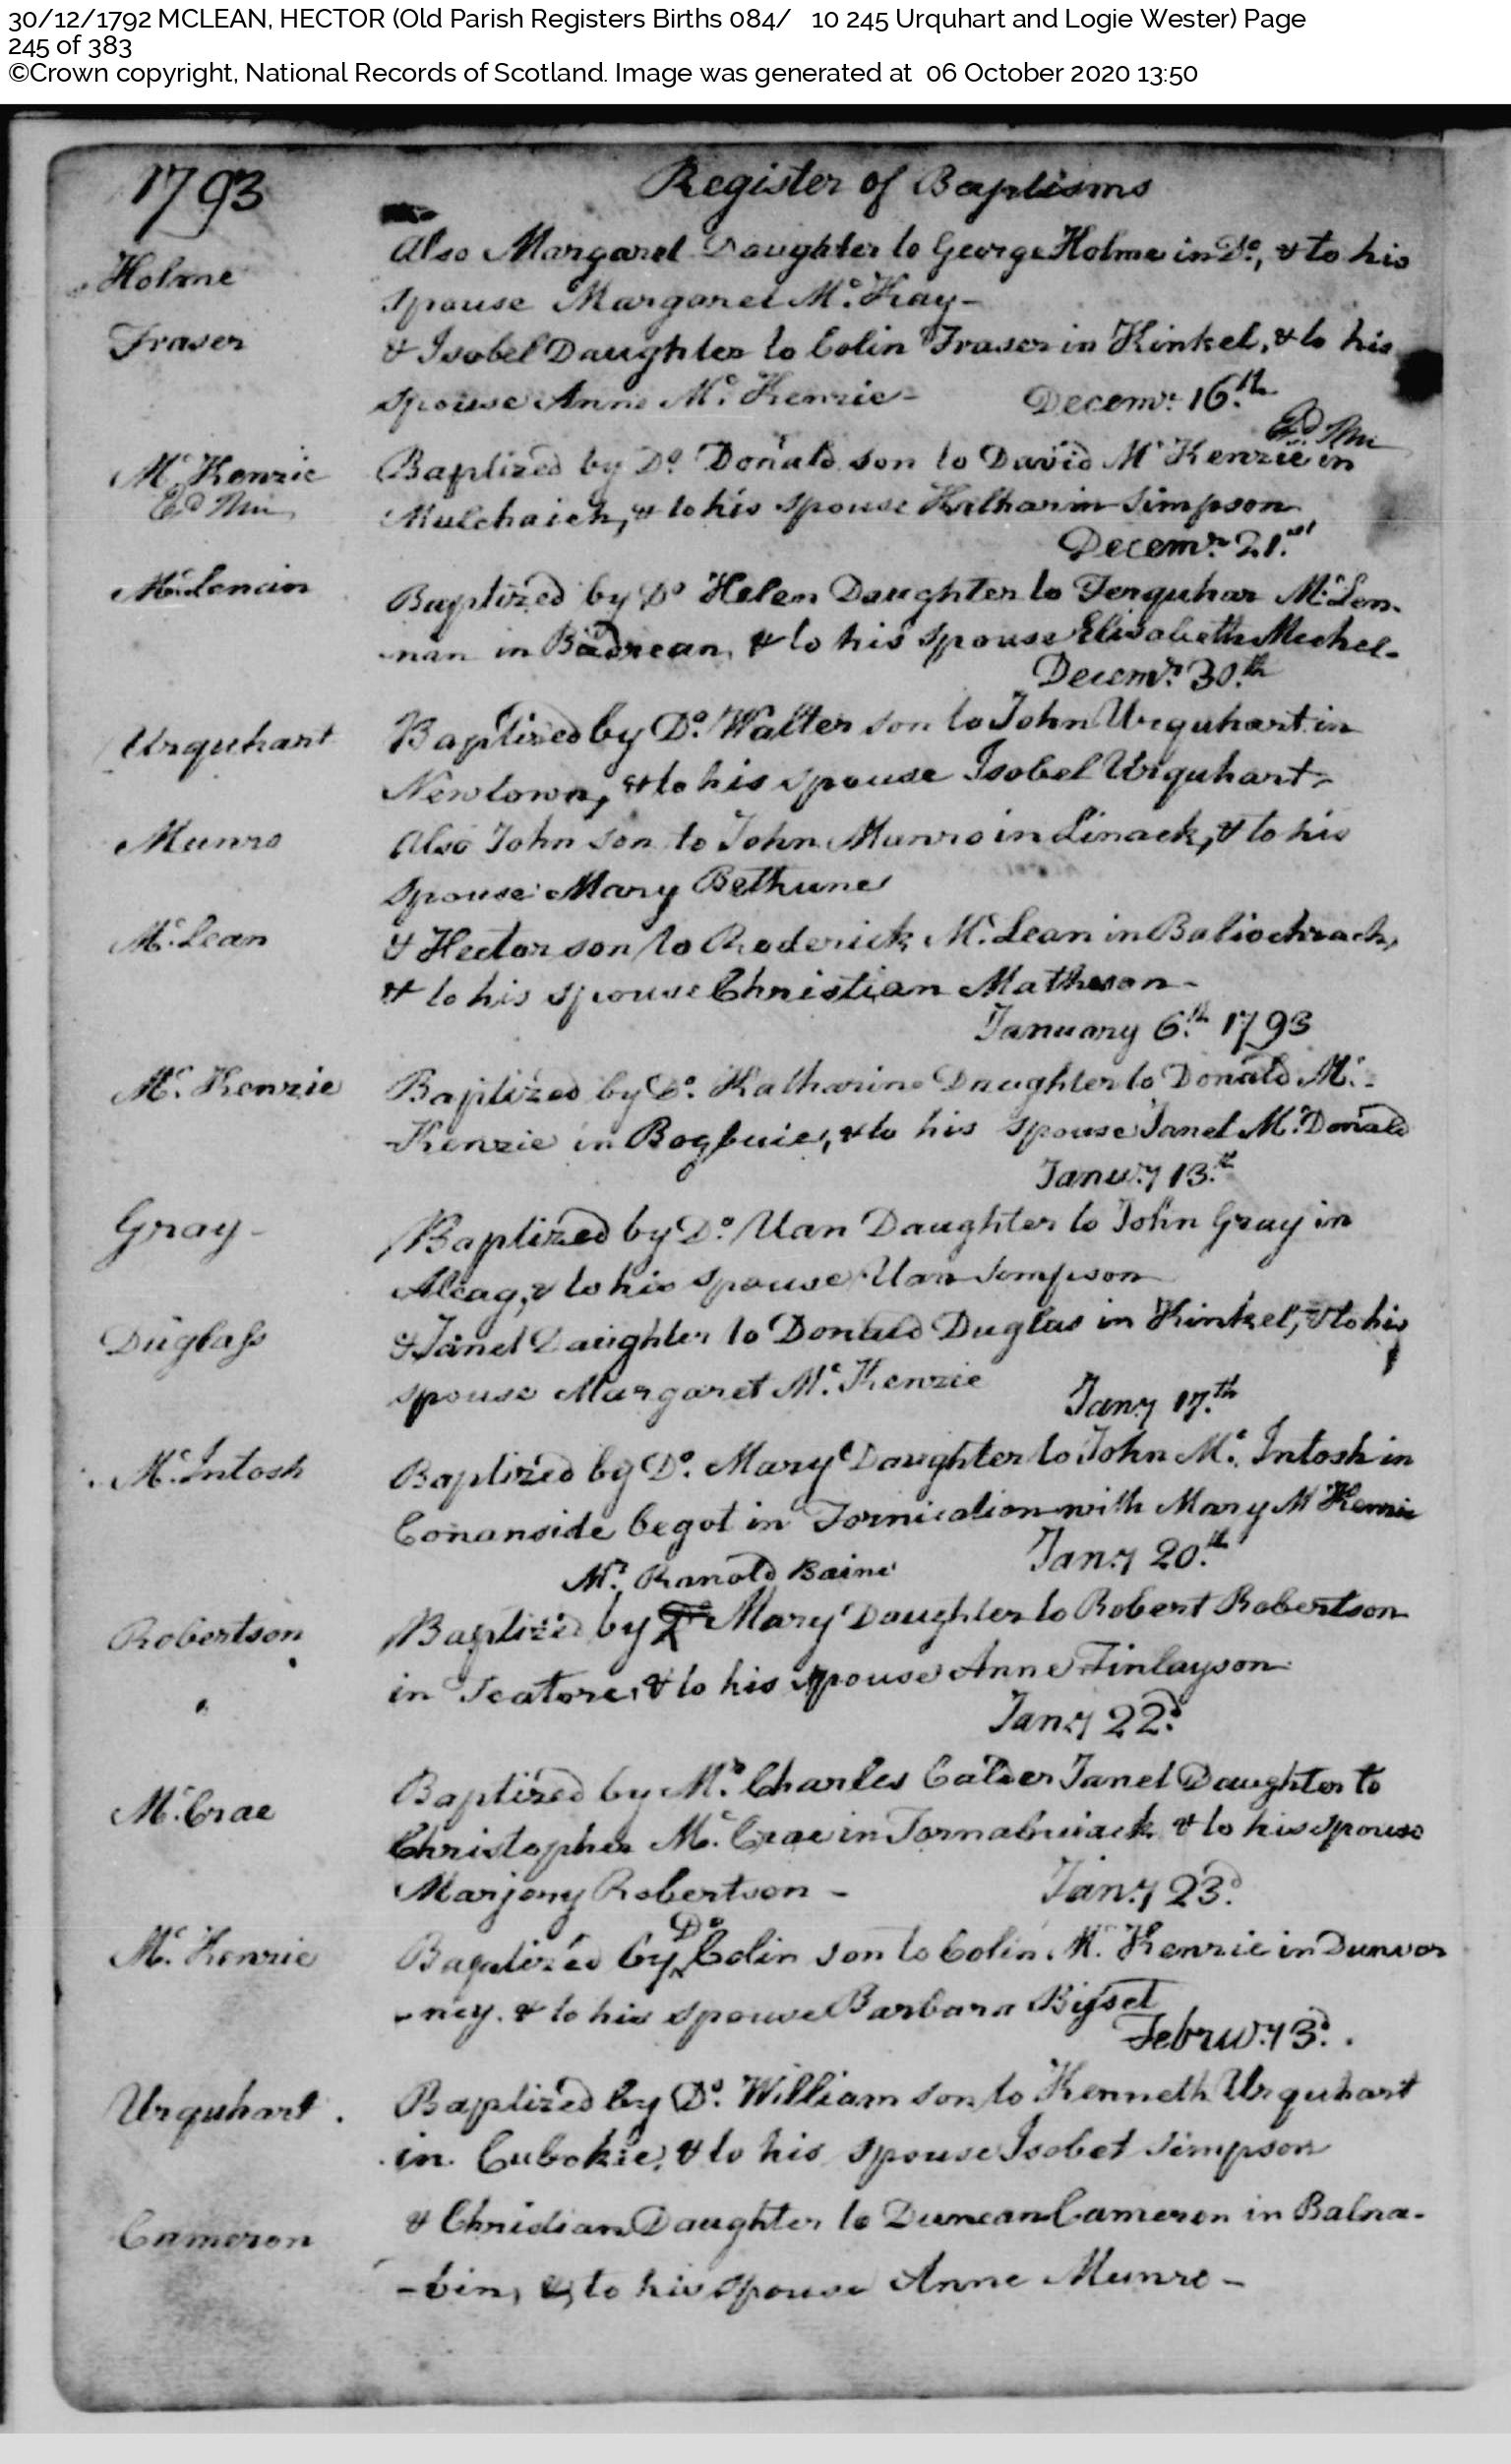 30/12/1792 MCLEAN, HECTOR (Old Parish Registers Births 084/ 10 245 Urquhart and Logie Wester) Page
245 of 383
©Crown copyright, National Records of Scotland. Image was generated at 06 October 2020 13:50
1793
Register of Baptisms
Holme
Also Margaret Daughter to George Holme in Do, & to his
spouse Margaret Mc. Kay-
Fraser
& Isobel Daughter to Colin Fraser in Kinkel, & to his
spouse Anne Mc. Kenzie-
Decemr. 16.th
Mc Kenzie
Baptized by Do Donald son to David Mc Kenzie in
Mulchaich, & to his spouse Katharin Simpson
Decemr. 21.st
Mc. Lenan
Baptized by Do Helen Daughter to Ferquhar Mc. Len-
-nan in Badrean, & to his spouse Elisabeth Mechel-
Decemr. 30.th
Urquhart
Baptized by Do. Walter son to John Urquhart in
Newtown, & to his spouse Isobel Urquhart-
Munro
Also John son to John Munro in Linack, & to his
spouse Mary Bethune
Mc. Lean
& Hector son to Roderick Mc. Lean in Baliochrach,
& to his spouse Christian Matheson-
January 6.th 1793
Mc. Kenzie
Baptized by Do. Katharine Daughter to Donald Mc.-
-Kenzie in Bogbuie, & to his spouse Janet Mc. Donald
Janury 13.th
Gray-
Baptized by Do. Uan Daughter to John Gray in
Alcag, & to his spouse Uan Simpson
Duglass
& Janet Daughter to Donald Duglas in Kinkel, & to his
spouse Margaret Mc. Kenzie
Jan:y 17.th
Mc. Intosh
Baptized by Do. Mary Daughter to John Mc. Intosh in
Conanside begot in Fornication with Mary Mc Kenzie
Jan:y 20.th
Mr. Ranold Baine
Robertson
Baptized by Do Mary Daughter to Robert Robertson
in Teatore, & to his spouse Anne Finlayson
Jan:y 22d.
Mc. Crae
Baptized by Mr. Charles Calder Janet Daughter to
Christopher Mc. Crae in Tornabuiack & to his spouse
Marjory Robertson -
Jan:y 23d.
Mc. Kenzie
Baptized by Do Colin son to Colin Mc. Kenzie in Dunvor
-ney. & to his spouse Barbara Bisset
Febru:y 3d.
Urquhart.
Baptized by Do. William son to Kenneth Urquhart
in Culbokie, & to his spouse Isobel Simpson
Cameron
& Christian Daughter to Duncan Cameron in Balna-
-bin, & to his spouse Anne Munro-